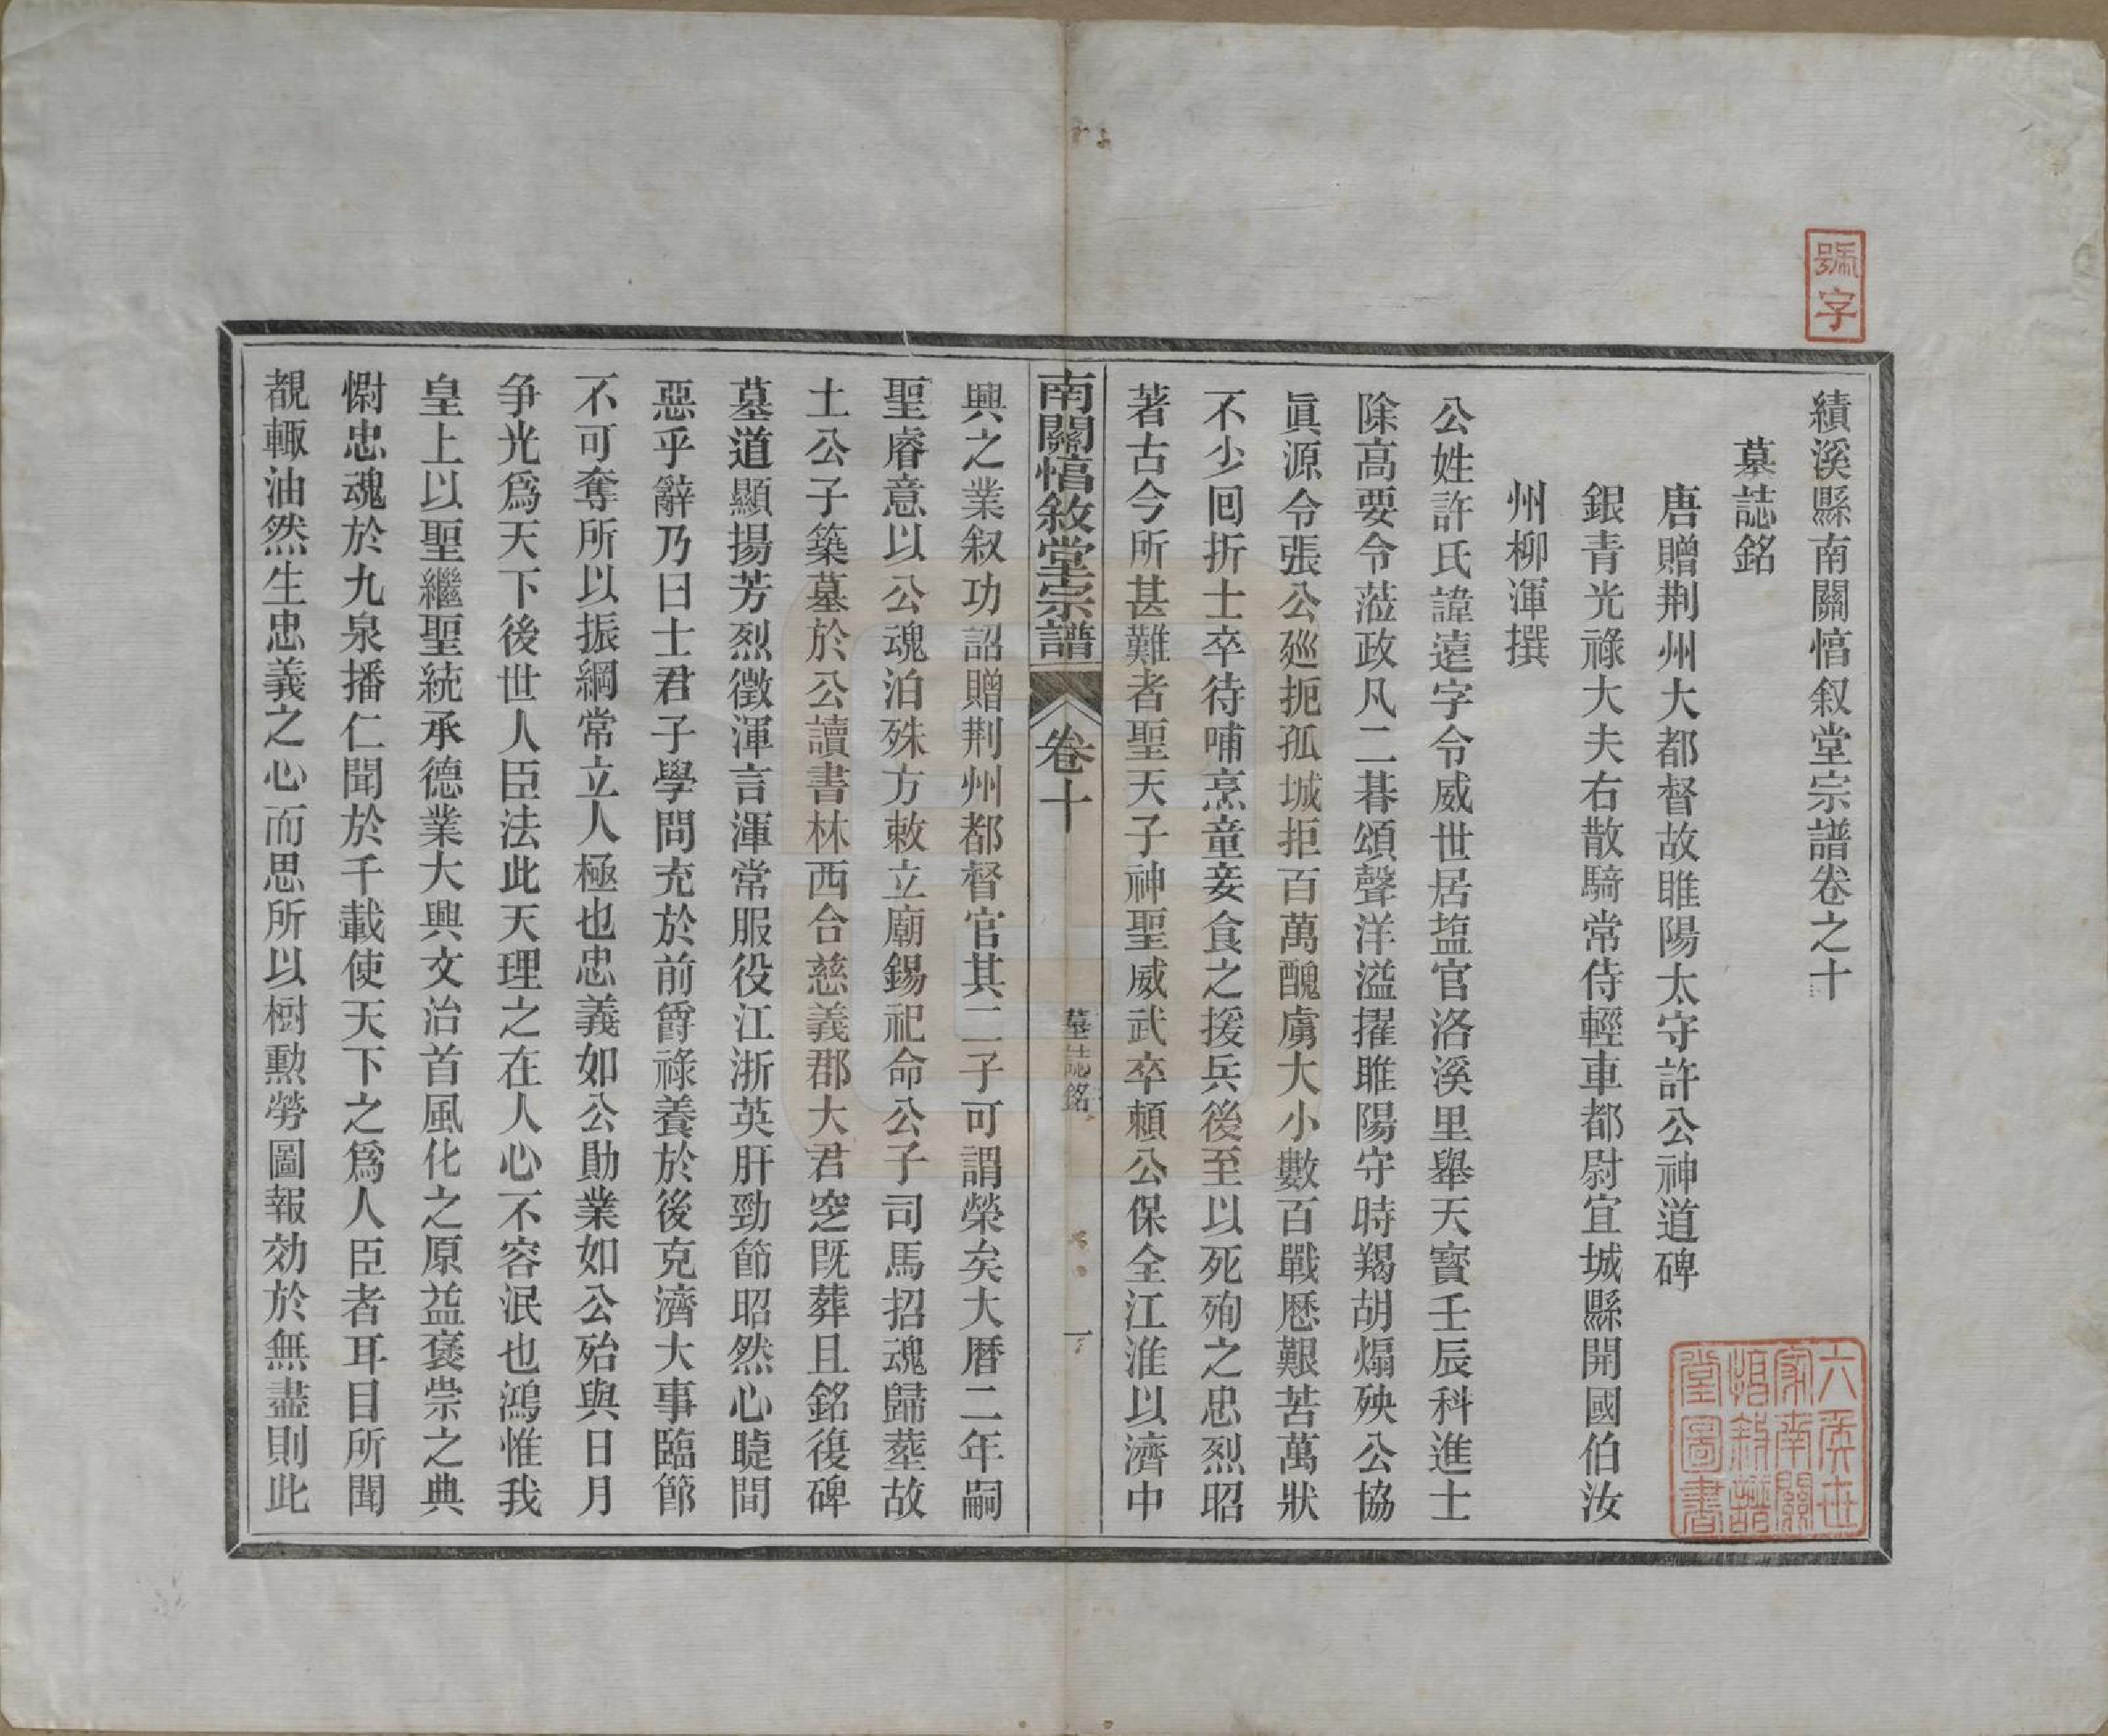 績溪縣南關惇叙堂宗譜卷之十
墓誌銘
唐贈荆州大都督故睢陽太守許公神道碑
銀青光祿大夫右散騎常侍輕車都尉宜城縣開國伯汝
州柳渾撰
公姓許氏諱遠字令威世居塩官洛溪里舉天寳壬辰科進士
除高要令蒞政凡二碁頌聲洋溢擢睢陽守時羯胡煽殃公協
眞源令張公廵扼孤城拒百萬醜虜大小數百戰歷艱苦萬狀
不少囘折士卒待哺烹童妾食之援兵後至以死殉之忠烈昭
著古今所甚難者聖天子神聖威武卒賴公保全江淮以濟中
南關惇敘堂宗譜
卷十
墓誌銘
一
興之業叙功詔贈荆州都督官其二子可謂榮矣大曆二年嗣
聖睿意以公魂泊殊方敕立廟錫祀命公子司馬招魂歸塟故
土公子築墓於公讀書林西合慈義郡大君窆既葬且銘復碑
墓道顯揚芳烈徵渾言渾常服役江浙英肝勁節昭然心睫間
惡乎辭乃曰士君子學問充於前爵祿養於後克濟大事臨節
不可奪所以振綱常立人極也忠義如公勛業如公殆與日月
争光爲天下後世人臣法此天理之在人心不容泯也鴻惟我
皇上以聖繼聖統承德業大興文治首風化之原益褒崇之典
慰忠魂於九泉播仁聞於千載使天下之爲人臣者耳目所聞
覩輙油然生忠義之心而思所以樹勲勞圖報効於無盡則此
號字
六族世
家南關
惇叙譜
堂圖書